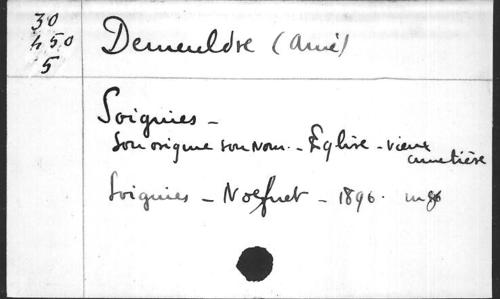 30
450
5
Demeuldre (Amé)
Soignies -
Son origine son nom. - Eglise - vieux
cimetière
Soignies - Noëfnet - 1896. in 8º